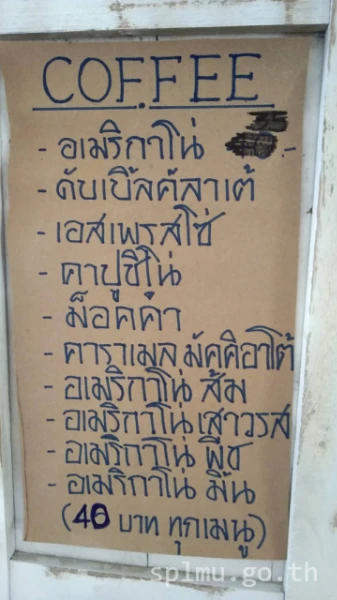 COFFEE
- อเมริกาโน่ 35.-
- ดับเบิ้ลค๊ลาเต้
- เอสเพรสโซ่
- คาปูชิโน่
- ม็อคค่า
- คาราเมล มัคคิอาโต้
- อเมริกาโน่ ส้ม
- อเมริกาโน่ เสาวรส
- อเมริกาโน่ พีช
- อเมริกาโน่ มิ้น
(40 บาท ทุกเมนู)
splmu.go.th